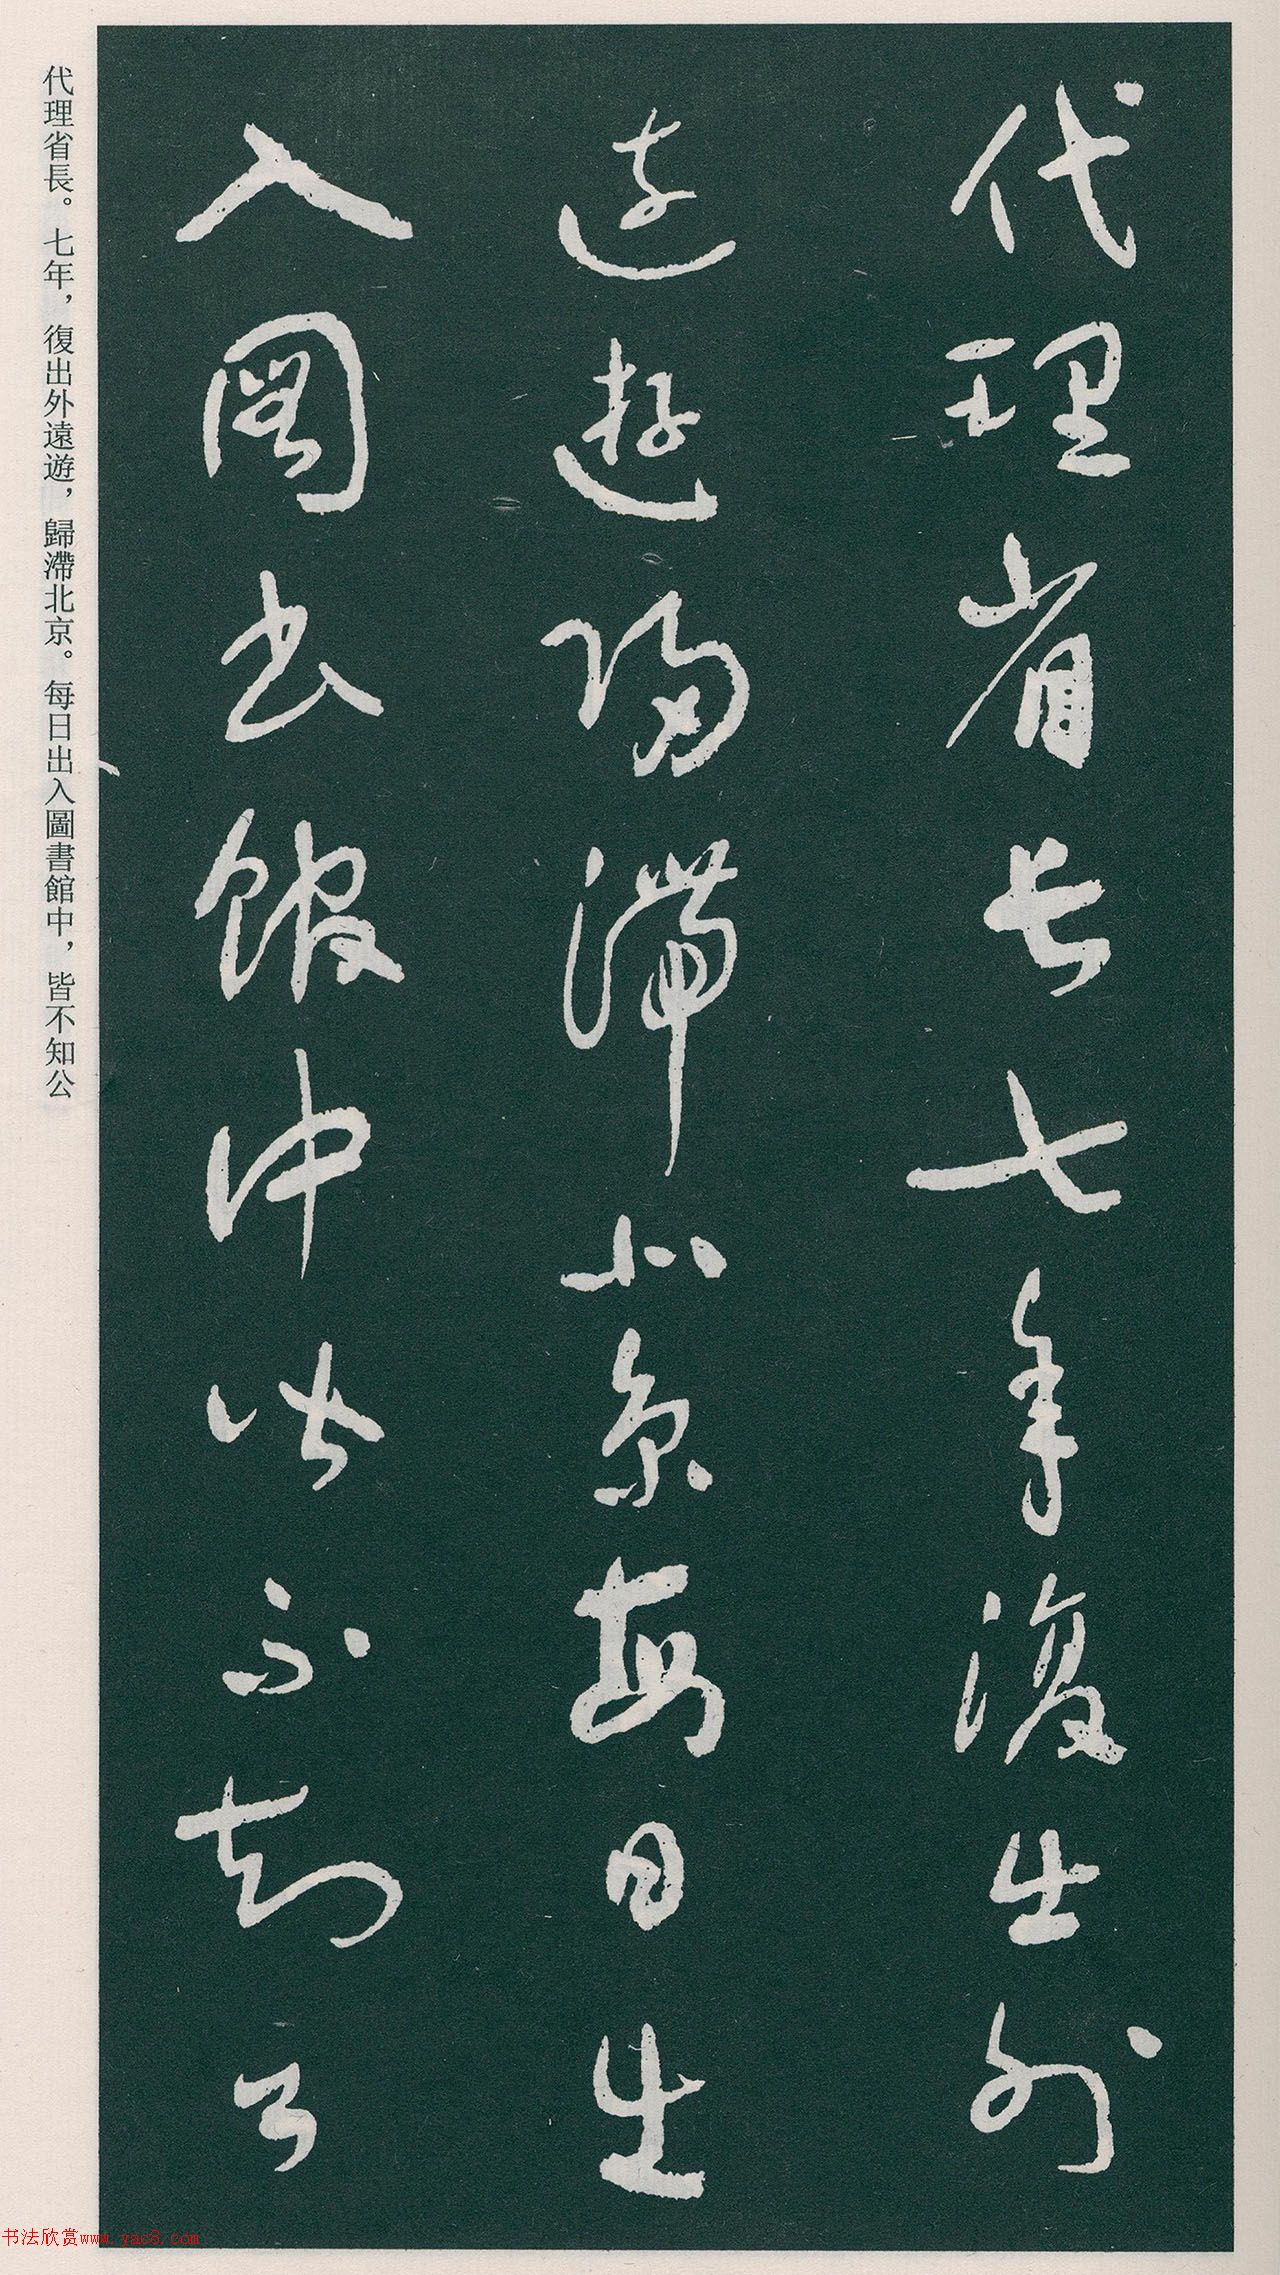 代理省長七年復出外
遠遊歸滯北京每日出
入圖書館中皆不知公
代理省長。七年，復出外遠遊，歸滯北京。每日出入圖書館中，皆不知公
书法欣赏www.yac8.com